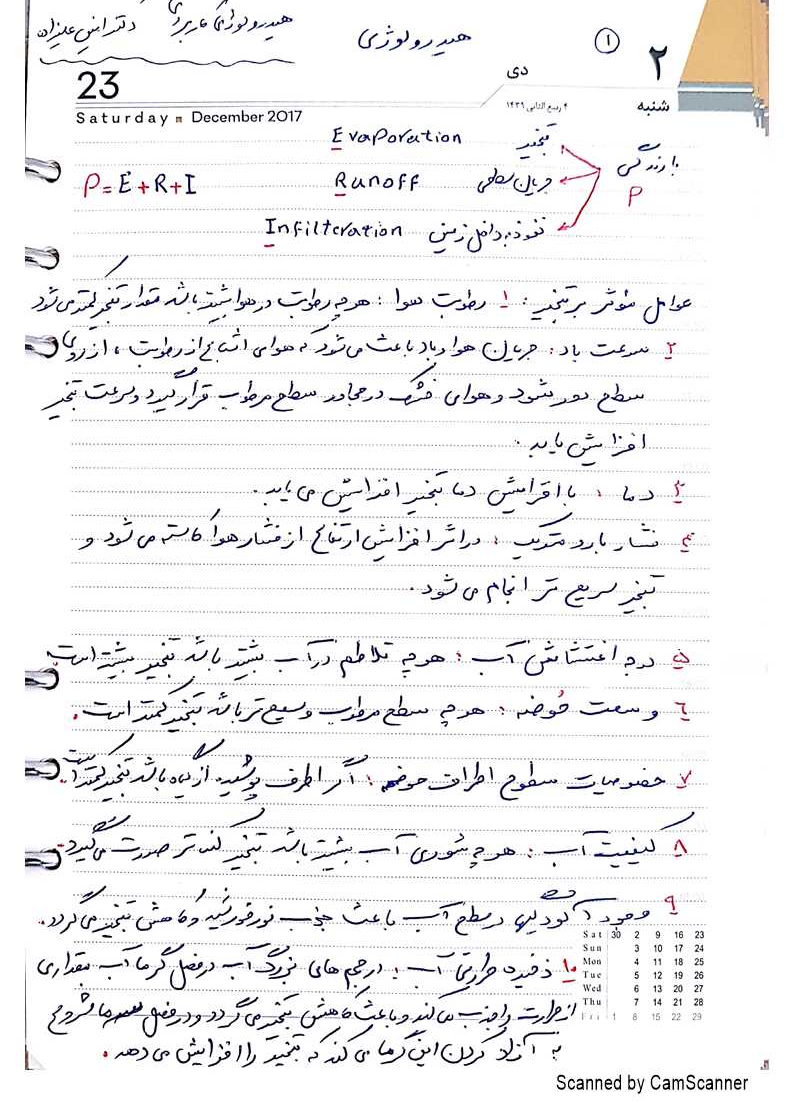 هیدرولوژی کاربردی دکتر امین علیزاده
هیدرولوژی
۱
۲
دی
شنبه
۴ ربیع الثانی ۱۴۳۹
23
Saturday December 2017
Evaporation تبخیر
بارندگی
P
P = E + R + I
Runoff جریان سطحی
Infilteration نفوذ به داخل زمین
عوامل مؤثر بر تبخیر : ۱ رطوبت هوا : هرچه رطوبت در هوا بیشتر باشد مقدار تبخیر کمتر می شود
۲ سرعت باد : جریان هوا و باد باعث می شود که هوای اشباع از رطوبت ، از روی
سطح دور شود و هوای خشک در مجاور سطح مرطوب قرار گیرد و سرعت تبخیر
افزایش یابد .
۳ دما : با افزایش دما تبخیر افزایش می یابد .
۴ فشار بارومتریک : در اثر افزایش ارتفاع از فشار هوا کاسته می شود و
تبخیر سریع تر انجام می شود .
۵ درجه اغتشاش آب : هرچه تلاطم در آب بیشتر باشد تبخیر بیشتر است .
۶ وسعت حوضه : هرچه سطح مرطوب وسیع تر باشد تبخیر کمتر است .
۷ خصوصیات سطوح اطراف حوضه : اگر اطراف پوشیده از گیاه باشد تبخیر کمتر است .
۸ کیفیت آب : هرچه شوری آب بیشتر باشد تبخیر کندتر صورت می گیرد .
۹ وجود آلودگیها در سطح آب باعث جذب نور خورشید و کاهش تبخیر می گردد .
۱۰ ذخیره حرارتی آب : در حجم های بزرگ آب در فصل گرما آب مقداری
از حرارت را جذب می کند و باعث کاهش تبخیر می گردد و در فصل سرما شروع
به آزاد کردن این گرما می کند که تبخیر را افزایش می دهد .
Sat 30 2 9 16 23
Sun 3 10 17 24
Mon 4 11 18 25
Tue 5 12 19 26
Wed 6 13 20 27
Thu 7 14 21 28
Fri 1 8 15 22 29
Scanned by CamScanner